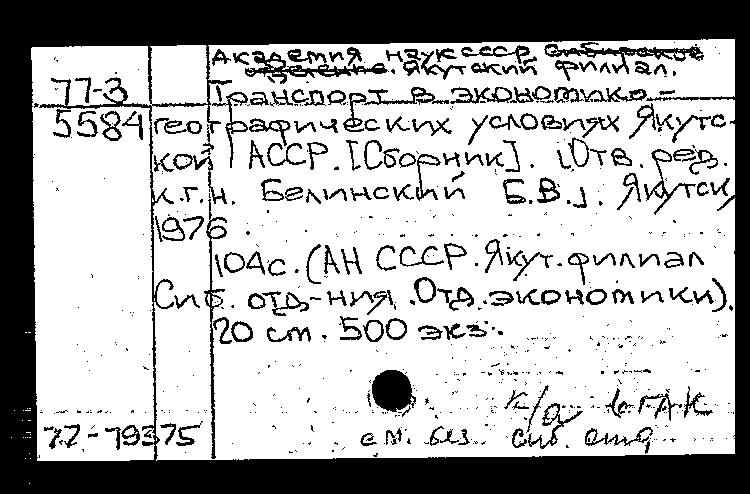 Академия наук СССР Сибирское
отделение. Якутский филиал.
77-3 Транспорт в экономико-
5584 географических условиях Якутс-
кой АССР. [Сборник]. [Отв. ред.
к.г.н. Белинский Б.В.]. Якутск,
1976
104с. (АН СССР. Якут. филиал
Сиб. отд-ния. Отд. экономики).
20 см. 500 экз.
к/а
77-79375 см. без. сиб. отд